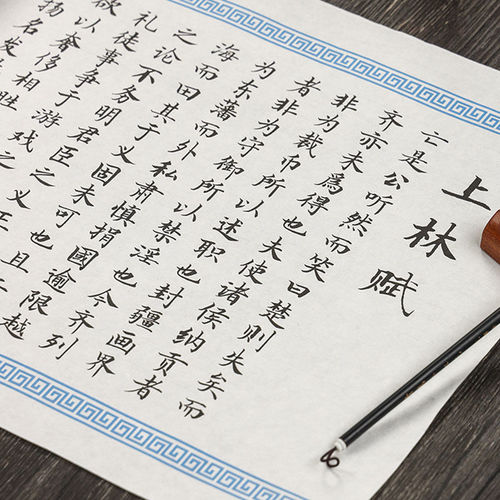 上林赋
亡是公听然而笑曰楚则失矣而
齐亦未為得也夫使诸侯纳贡者
非为裁币所以述职也封疆画界
者非为守御所以禁淫也今齐列
为东藩而外私肃慎捐國逾限越
海而田其于义固未可也且
之论不务明君臣之义正
礼徒事争于游戏之
欲以奢侈相胜
名发